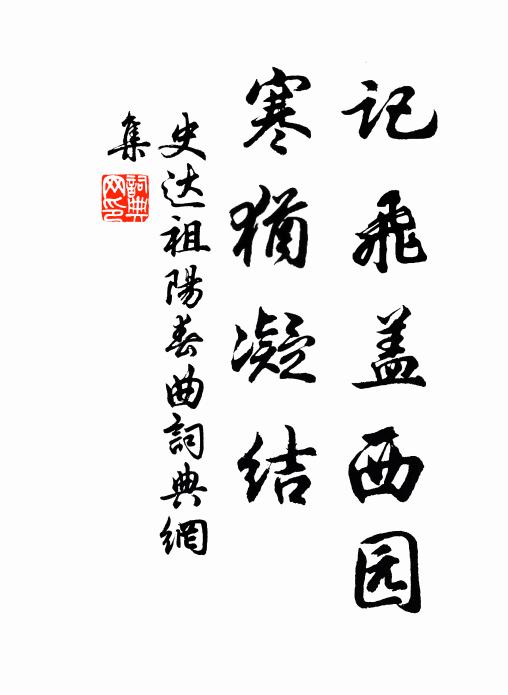 记飞盖西园
寒犹凝结
史达祖陽春曲詞典網
集
詞典
网印